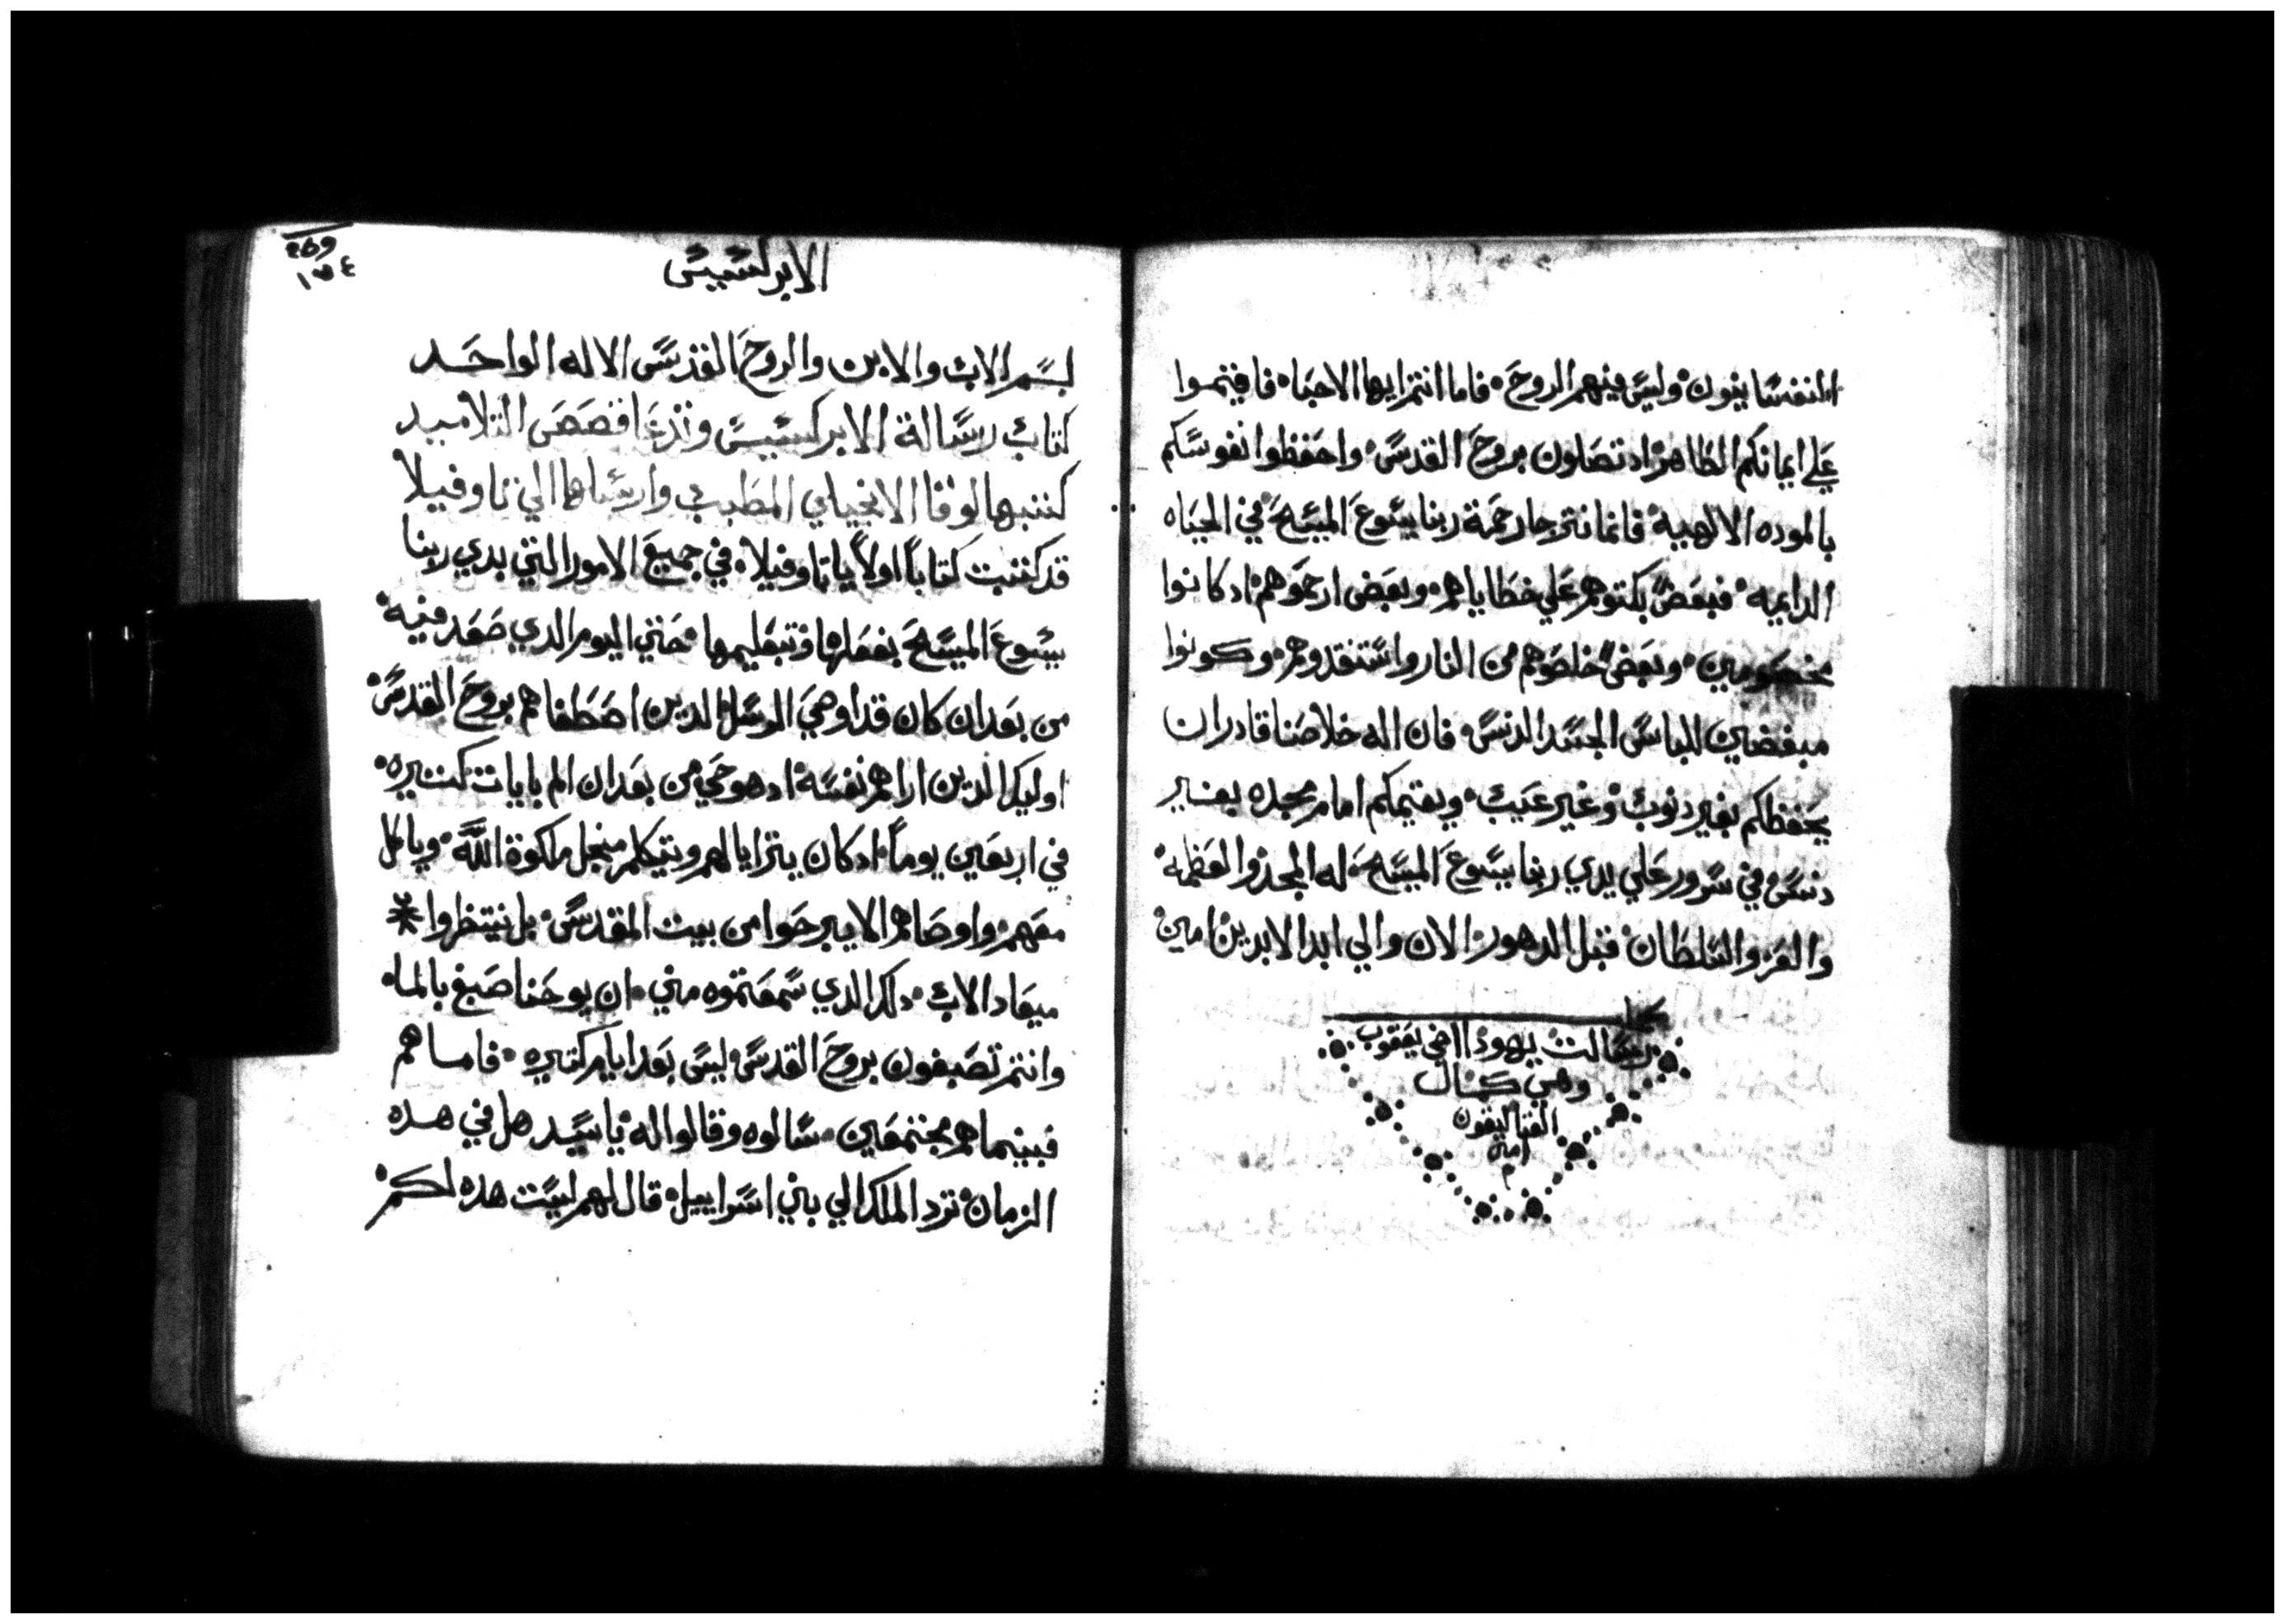 النفسانيون وليس فيهم الروح. فاما انتم ايها الاحباء فاقيتموا
علي ايمانكم الطاهر اد تصلون بروح القدس. واحفظوا نفوسكم
بالموده الالهية. فانما نترجا رحمة ربنا يسوع المسيح في الحياه
الدايمه. فبعضٌ بكتوهم علي خطاياهم. وبعض ارحموهم اد كانوا
مخصومين. وبعض خلصوهم من النار واستنقدوهم. وكونوا
مبغضين للباس الجسد الدنس. فان اله خلاصنا قادر ان
يحفظكم بغير دنوب وغير عيب. ويقيمكم امام مجده بغير
دنس في سرور علي يدي ربنا يسوع المسيح. له المجد والعظمه.
والعز والسلطان قبل الدهور. الان والي ابد الابدين امين
رسالت يهودا اخي يعقوب
وهي كمال
القتاليقون
امين
269
١٣٤
الابركسيس
بسم الاب والابن والروح القدس الاله الواحد
كتاب رسالة الابركسيس وتدعا قصص التلاميد
كتبها لوقا الانجيلي المطبب وارسلها الي تاوفيلا
قد كتبت كتاباً اولاً يا تاوفيلا. في جميع الامور التي بدي ربنا
يسوع المسيح بفعلها وتبعليمها. حتي اليوم الدي صعد فيه.
من بعد ان كان قد اوصي الرسل الدين اصطفاهم بروح القدس.
اوليك الدين اراهم نفسه اد هو حي من بعد ان الم بايات كتيره.
في اربعين يوماً. اد كان يترايا لهم ويتكلم منجل ملكوة الله. وياكل
معهم. واوصاهم الا يبرحوا من بيت المقدس. بل ينتظروا
ميعاد الاب. دلك الدي سمعتموه مني. ان يوحنا صبغ بالماء
وانتم تصبغون بروح القدس. ليس بعد ايام كتيره. فاما هم
فبينما هم مجتمعين. سالوه وقالوا له يا سيد هل في هده
الزمان ترد الملك الي بني اسراييل. قال لهم ليست هده لكم